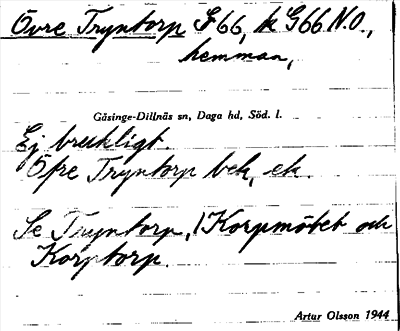 Övre Tryntorp F66, k G66 N.O.,
hemman,
Gåsinge-Dillnäs sn, Daga hd, Söd. l.
Ej brukligt.
Öfre Tryntorp bek, ek.
Se Tryntorp, Korpmötet och
Korptorp.
Artur Olsson 1944